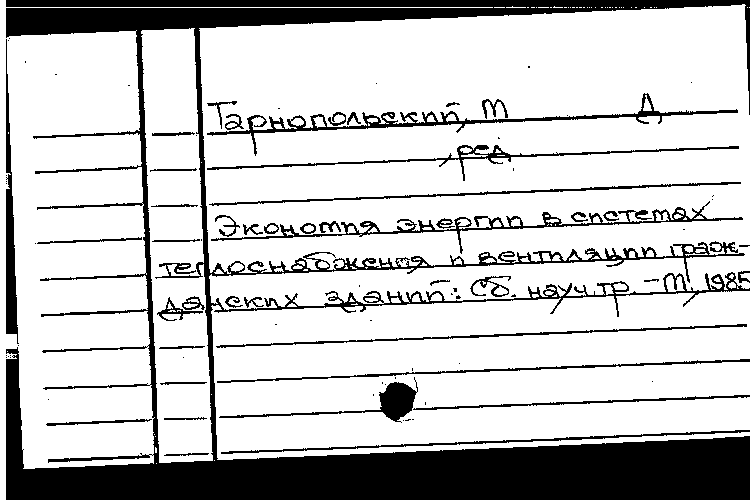 Тарнопольский, М Д
, ред
Экономия энергии в системах
теплоснабжения и вентиляции граж-
данских зданий: Сб. науч. тр. - М., 1985